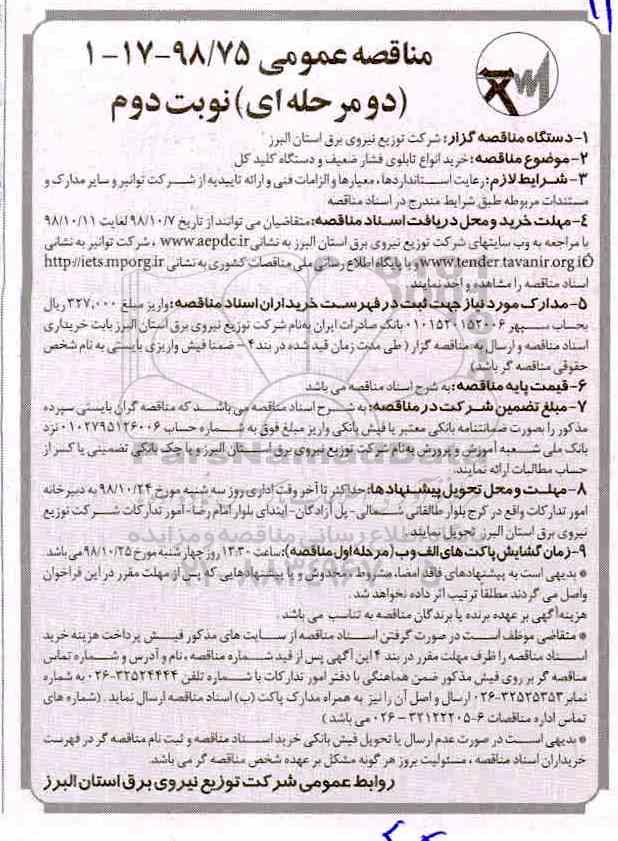 مناقصه عمومی ۹۸/۷۵-۱۷-۱
(دو مرحله ای) نوبت دوم
۱- دستگاه مناقصه گزار: شرکت توزیع نیروی برق استان البرز
۲- موضوع مناقصه: خرید انواع تابلوی فشار ضعیف و دستگاه کلید کل
۳- شرایط لازم: رعایت استانداردها، معیارها و الزامات فنی و ارائه تاییدیه از شرکت توانیر و سایر مدارک و
مستندات مربوطه طبق شرایط مندرج در اسناد مناقصه
۴- مهلت خرید و محل دریافت اسناد مناقصه: متقاضیان می توانند از تاریخ ۹۸/۱۰/۷ لغایت ۹۸/۱۰/۱۱
با مراجعه به وب سایتهای شرکت توزیع نیروی برق استان البرز به نشانی www.aepdc.ir ، شرکت توانیر به نشانی
www.tender.tavanir.org.ir و یا پایگاه اطلاع رسانی ملی مناقصات کشوری به نشانی http://iets.mporg.ir
اسناد مناقصه را مشاهده و اخذ نمایند.
۵- مدارک مورد نیاز جهت ثبت در فهرست خریداران اسناد مناقصه: واریز مبلغ ۳۲۷,۰۰۰ ریال
بحساب سپهر ۰۱۰۱۵۲۰۱۵۲۰۰۶ بانک صادرات ایران به‌نام شرکت توزیع نیروی برق استان البرز بابت خریداری
اسناد مناقصه و ارسال به مناقصه گزار (طی مدت زمان قید شده در بند ۴ - ضمنا فیش واریزی بایستی به نام شخص
حقوقی مناقصه گر باشد)
۶- قیمت پایه مناقصه: به شرح اسناد مناقصه می باشد
۷- مبلغ تضمین شرکت در مناقصه: به شرح اسناد مناقصه می باشد که مناقصه گران بایستی سپرده
مذکور را بصورت ضمانتنامه بانکی معتبر یا فیش بانکی واریز مبلغ فوق به شماره حساب ۰۱۰۲۷۹۵۱۲۶۰۰۶ نزد
بانک ملی شعبه آموزش و پرورش به‌نام شرکت توزیع نیروی برق استان البرز و یا چک بانکی تضمینی یا کسر از
حساب مطالبات ارائه نمایند.
۸- مهلت و محل تحویل پیشنهادها: حداکثر تا آخر وقت اداری روز سه شنبه مورخ ۹۸/۱۰/۲۴ به دبیرخانه
امور تدارکات واقع در کرج بلوار طالقانی شمالی- پل آزادگان- ابتدای بلوار امام رضا- امور تدارکات شرکت توزیع
نیروی برق استان البرز تحویل نمایند.
۹- زمان گشایش پاکت های الف و ب (مرحله اول مناقصه): ساعت ۱۳:۳۰ روز چهارشنبه مورخ ۹۸/۱۰/۲۵ می باشد
* بدیهی است به پیشنهادهای فاقد امضا، مشروط، مخدوش و یا پیشنهادهایی که پس از مهلت مقرر در این فراخوان
واصل می گردند مطلقا ترتیب اثر داده نخواهد شد.
هزینه آگهی بر عهده برنده یا برندگان مناقصه به تناسب می باشد.
* متقاضی موظف است در صورت گرفتن اسناد مناقصه از سایت های مذکور فیش پرداخت هزینه خرید
اسناد مناقصه را ظرف مهلت مقرر در بند ۴ این آگهی پس از قید شماره مناقصه، نام و آدرس و شماره تماس
مناقصه گر بر روی فیش مذکور ضمن هماهنگی با دفتر امور تدارکات با شماره تلفن ۳۲۵۲۴۴۴۴-۰۲۶ به شماره
نمابر ۳۲۵۲۵۳۵۳-۰۲۶ ارسال و اصل آن را نیز به همراه مدارک پاکت (ب) اسناد مناقصه ارسال نماید. (شماره های
تماس اداره مناقصات ۶-۳۲۱۲۲۲۰۵ - ۰۲۶ می باشد)
* بدیهی است در صورت عدم ارسال یا تحویل فیش بانکی خرید اسناد مناقصه و ثبت نام مناقصه گر در فهرست
خریداران اسناد مناقصه، مسئولیت بروز هر گونه مشکل بر عهده شخص مناقصه گر می باشد.
روابط عمومی شرکت توزیع نیروی برق استان البرز